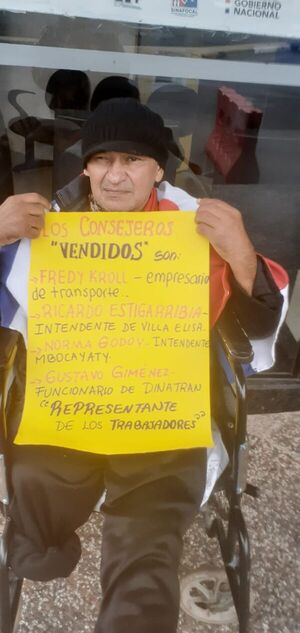 SINAFOCAL
GOBIERNO
NACIONAL
LOS CONSEJEROS
"VENDIDOS" SON:
→FREDY KROLL - empresario
de transporte..
→RICARDO ESTIGARRIBIA-
INTENDENTE DE VILLA ELISA.
→NORMA GODOY - INTENDENTE
MBOCAYATY.
→GUSTAVO GIMÉNEZ-
FUNCIONARIO DE DINATRAN
"REPRESENTANTE
DE LOS TRABAJADORES"